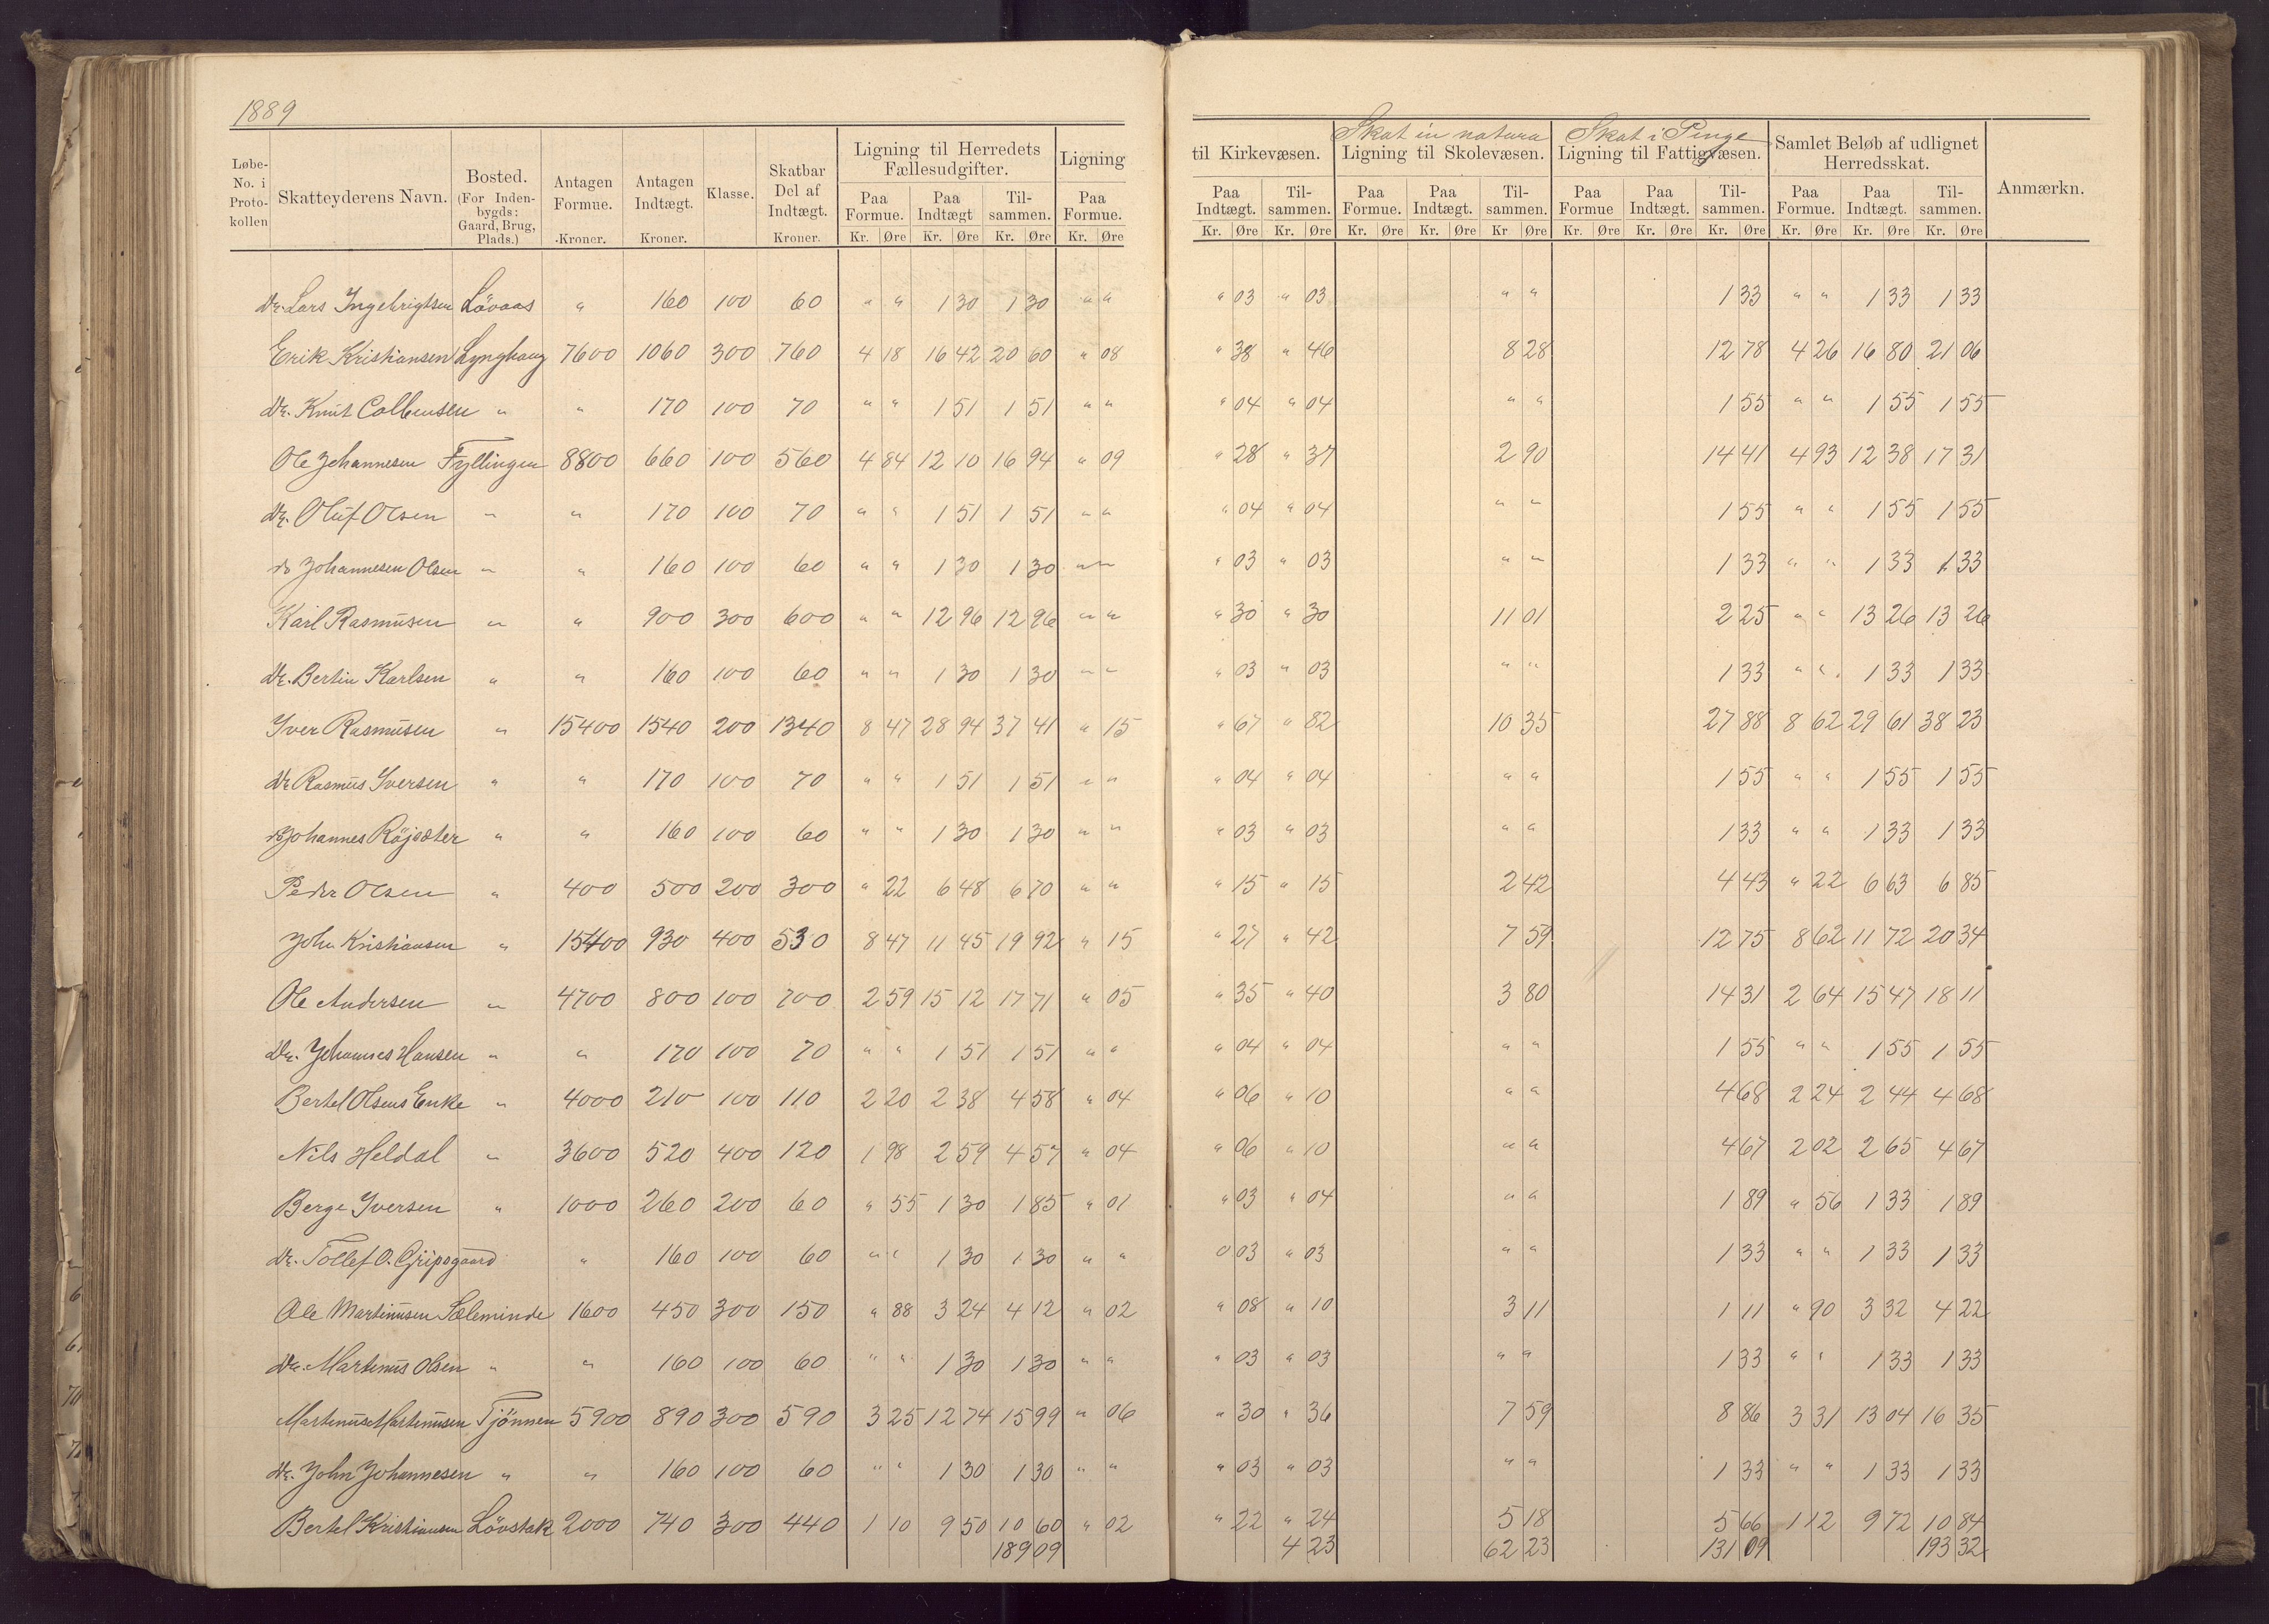 1889
Skat in natura Skat i Penge
Løbe-No. i Proto-kollen Skatteyderens Navn. Bosted. (For Inden-bygds: Gaard, Brug, Plads.) Antagen Formue. Kroner. Antagen Indtægt. Kroner. Klasse. Skatbar Del af Indtægt. Kroner. Ligning til Herredets Fællesudgifter. Paa Formue. Kr. Øre Paa Indtægt Kr. Øre Til-sammen. Kr. Øre Ligning Paa Formue. Kr. Øre til Kirkevæsen. Paa Indtægt. Kr. Øre Til-sammen. Kr. Øre Ligning til Skolevæsen. Paa Formue. Kr. Øre Paa Indtægt. Kr. Øre Til-sammen. Kr Øre Ligning til Fattigvæsen. Paa Formue Kr. Øre Paa Indtægt. Kr. Øre Til-sammen. Kr. Øre Samlet Beløb af udlignet Herredsskat. Paa Formue. Kr. Øre Paa Indtægt. Kr. Øre Til-sammen. Kr. Øre Anmærkn.
Dr. Lars Ingebrigtsen Lövaas " 160 100 60 " " 1 30 1 30 " " " 03 " 03 " " 1 33 " " 1 33 1 33
Erik Kristiansen Lynghaug 7600 1060 300 760 4 18 16 42 20 60 " 08 " 38 " 46 8 28 12 78 4 26 16 80 21 06
Dr. Knut Colbensen " " 170 100 70 " " 1 51 1 51 " " " 04 " 04 " " 1 55 " " 1 55 1 55
Ole Johannesen Fyllingen 8800 660 100 560 4 84 12 10 16 94 " 09 " 28 " 37 2 90 14 41 4 93 12 38 17 31
Dr. Oluf Olsen " " 170 100 70 " " 1 51 1 51 " " " 04 " 04 " " 1 55 " " 1 55 1 55
do Johannesen Olsen " " 160 100 60 " " 1 30 1 30 " " " 03 " 03 " " 1 33 " " 1 33 1 33
Karl Rasmusen " " 900 300 600 " " 12 96 12 96 " " " 30 " 30 11 01 2 25 " " 13 26 13 26
Dr. Bertin Karlsen " " 160 100 60 " " 1 30 1 30 " " " 03 " 03 " " 1 33 " " 1 33 1 33
Yver Rasmusen " 15400 1540 200 1340 8 47 28 94 37 41 " 15 " 67 " 82 10 35 27 88 8 62 29 61 38 23
Dr. Rasmus Yversen " " 170 100 70 " " 1 51 1 51 " " " 04 " 04 " " 1 55 " " 1 55 1 55
do Johannes Röjsæter " " 160 100 60 " " 1 30 1 30 " " " 03 " 03 " " 1 33 " " 1 33 1 33
Peder Olsen " 400 500 200 300 " 22 6 48 6 70 " " " 15 " 15 2 42 4 43 " 22 6 63 6 85
John Kristiansen " 15400 930 400 530 8 47 11 45 19 92 " 15 " 27 " 42 7 59 12 75 8 62 11 72 20 34
Ole Andersen " 4700 800 100 700 2 59 15 12 17 71 " 05 " 35 " 40 3 80 14 31 2 64 15 47 18 11
Dr. Johannes Hansen " " 170 100 70 " " 1 51 1 51 " " " 04 " 04 " " 1 55 " " 1 55 1 55
Bertel Olsens Enke " 4000 210 100 110 2 20 2 38 4 58 " 04 " 06 " 10 " " 4 68 2 24 2 44 4 68
Nils Heldal " 3600 520 400 120 1 98 2 59 4 57 " 04 " 06 " 10 " " 4 67 2 02 2 65 4 67
Berge Yversen " 1000 260 200 60 " 55 1 30 1 85 " 01 " 03 " 04 " " 1 89 " 56 1 33 1 89
Dr. Tollef O. Gripsgaard " 160 100 60 " " 1 30 1 30 " " 0 03 " 03 " " 1 33 " " 1 33 1 33
Ole Martinusen Sæleminde 1600 450 300 150 " 88 3 24 4 12 " 02 " 08 " 10 3 11 1 11 " 90 3 32 4 22
Dr. Martinus Olsen " " 160 100 60 " " 1 30 1 30 " " " 03 " 03 " " 1 33 " " 1 33 1 33
Martinus Martinusen Tjönnen 5900 890 300 590 3 25 12 74 15 99 " 06 " 30 " 36 7 59 8 86 3 31 13 04 16 35
Dr. John Johannesen " " 160 100 60 " " 1 30 1 30 " " " 03 " 03 " " 1 33 " " 1 33 1 33
Bertel Kristiansen Lövstak 2000 740 300 440 1 10 9 50 10 60 " 02 " 22 " 24 5 18 5 66 1 12 9 72 10 84
189 09 4 23 62 23 131 09 193 32